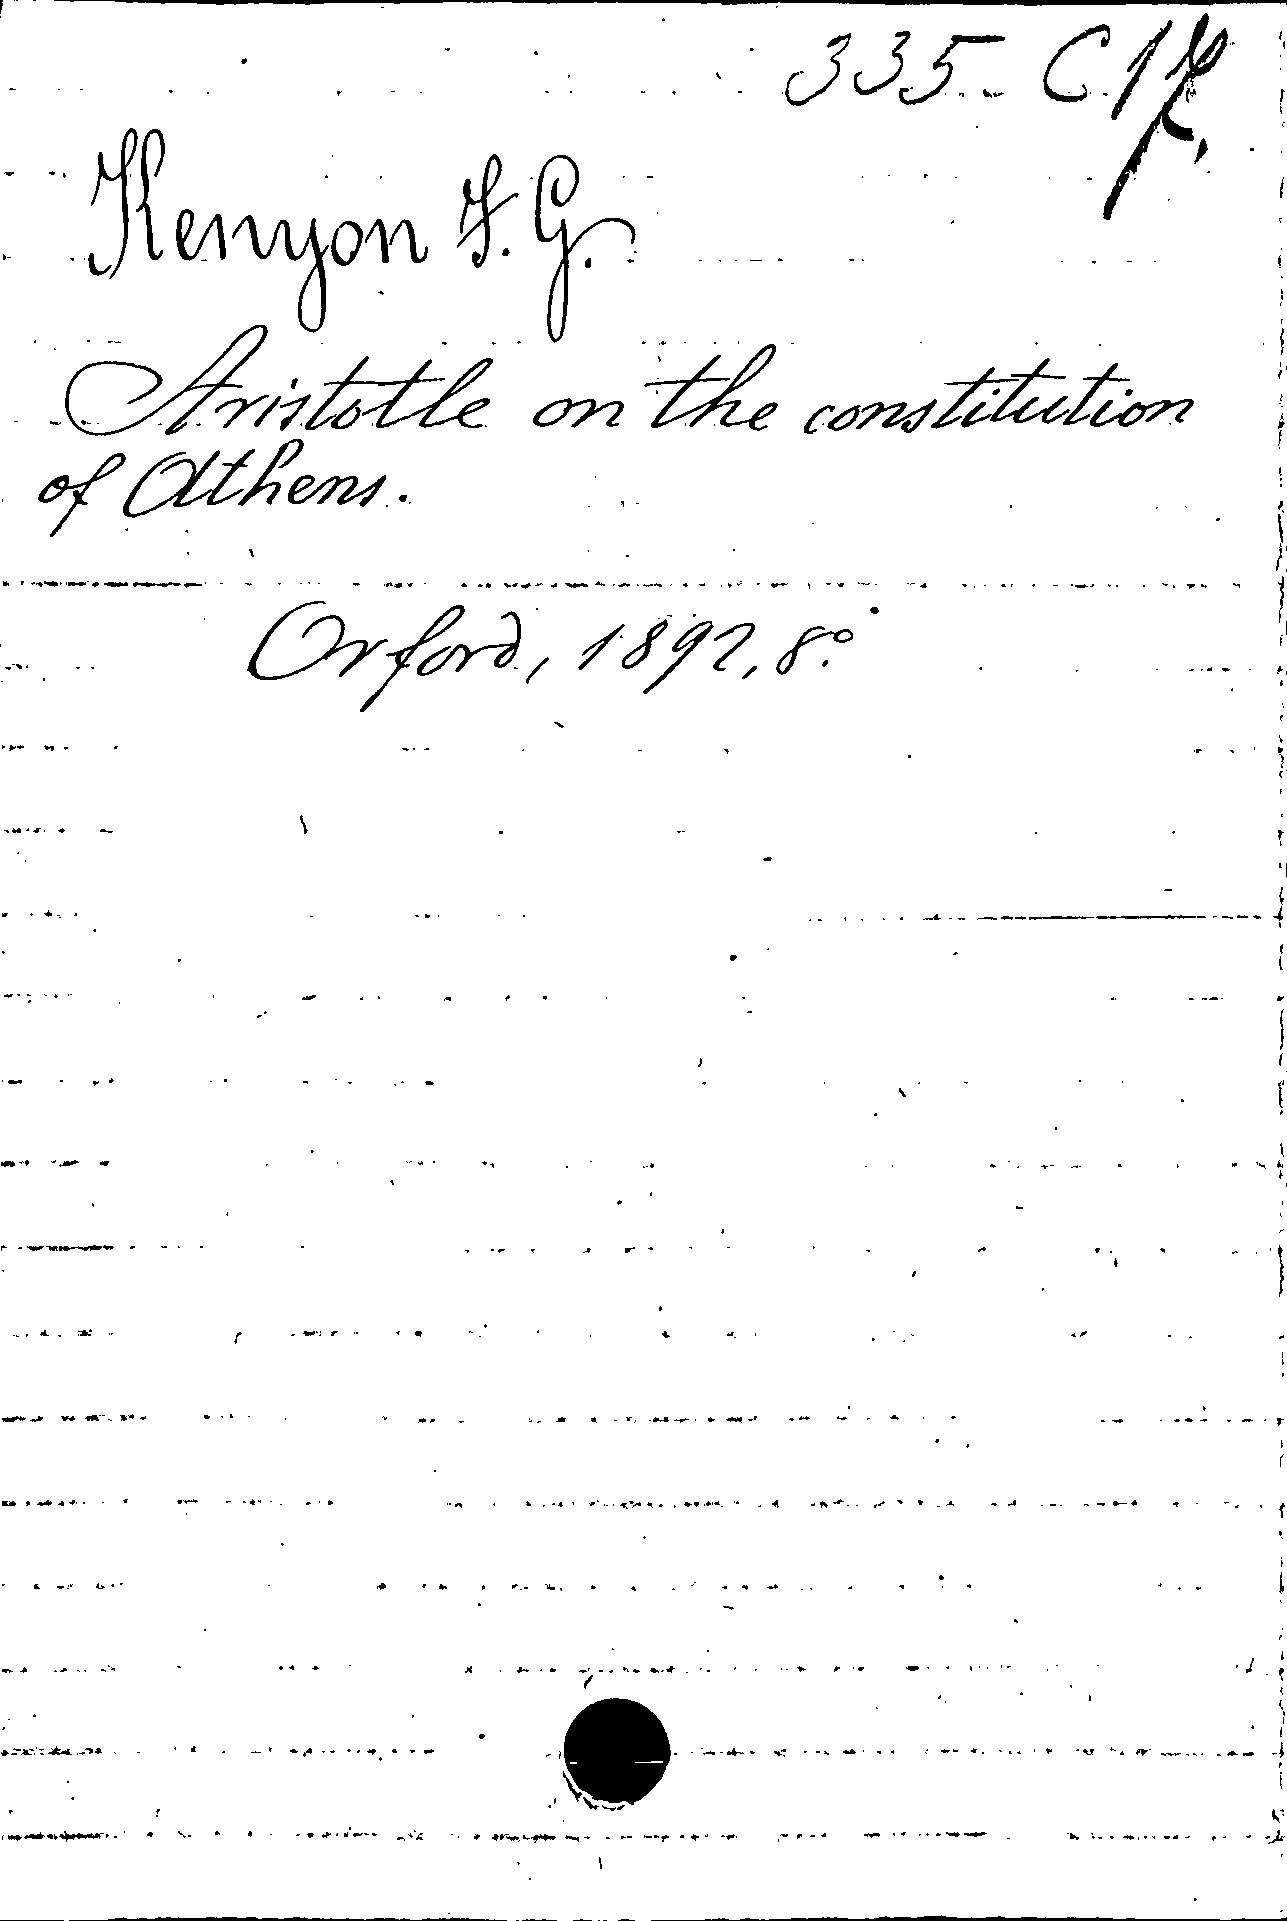 335-C17.
Kenyon F. G.
Aristotle on the constitution
of Athens.
Oxford, 1892, 8.°